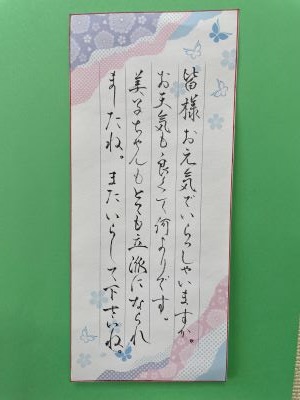 皆様お元気でいらっしゃいますか。
お天気も良くて何よりです。
美子ちゃんもとても立派になられ
ましたね。またいらして下さいね。